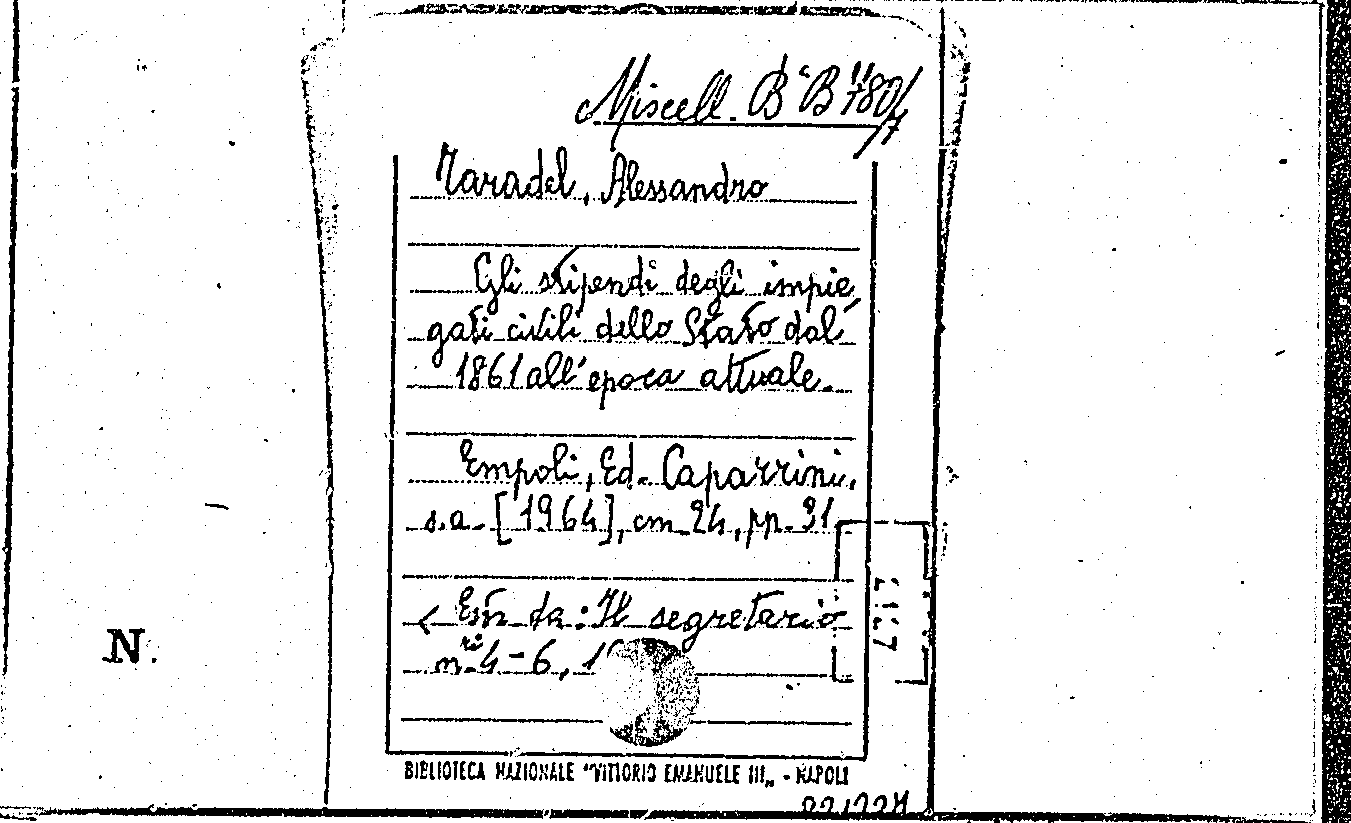 Miscell. B B 780/7
Taradel, Alessandro
Gli stipendi degli impie
gati civili dello Stato dal
1861 all'epoca attuale.
Empoli, Ed. Caparrini,
s.a. [1964], cm 24, pp. 31
( Estr. da: Il segretario
nri 4-6, 1
N.
BIBLIOTECA NAZIONALE "VITTORIO EMANUELE III„ - NAPOLI